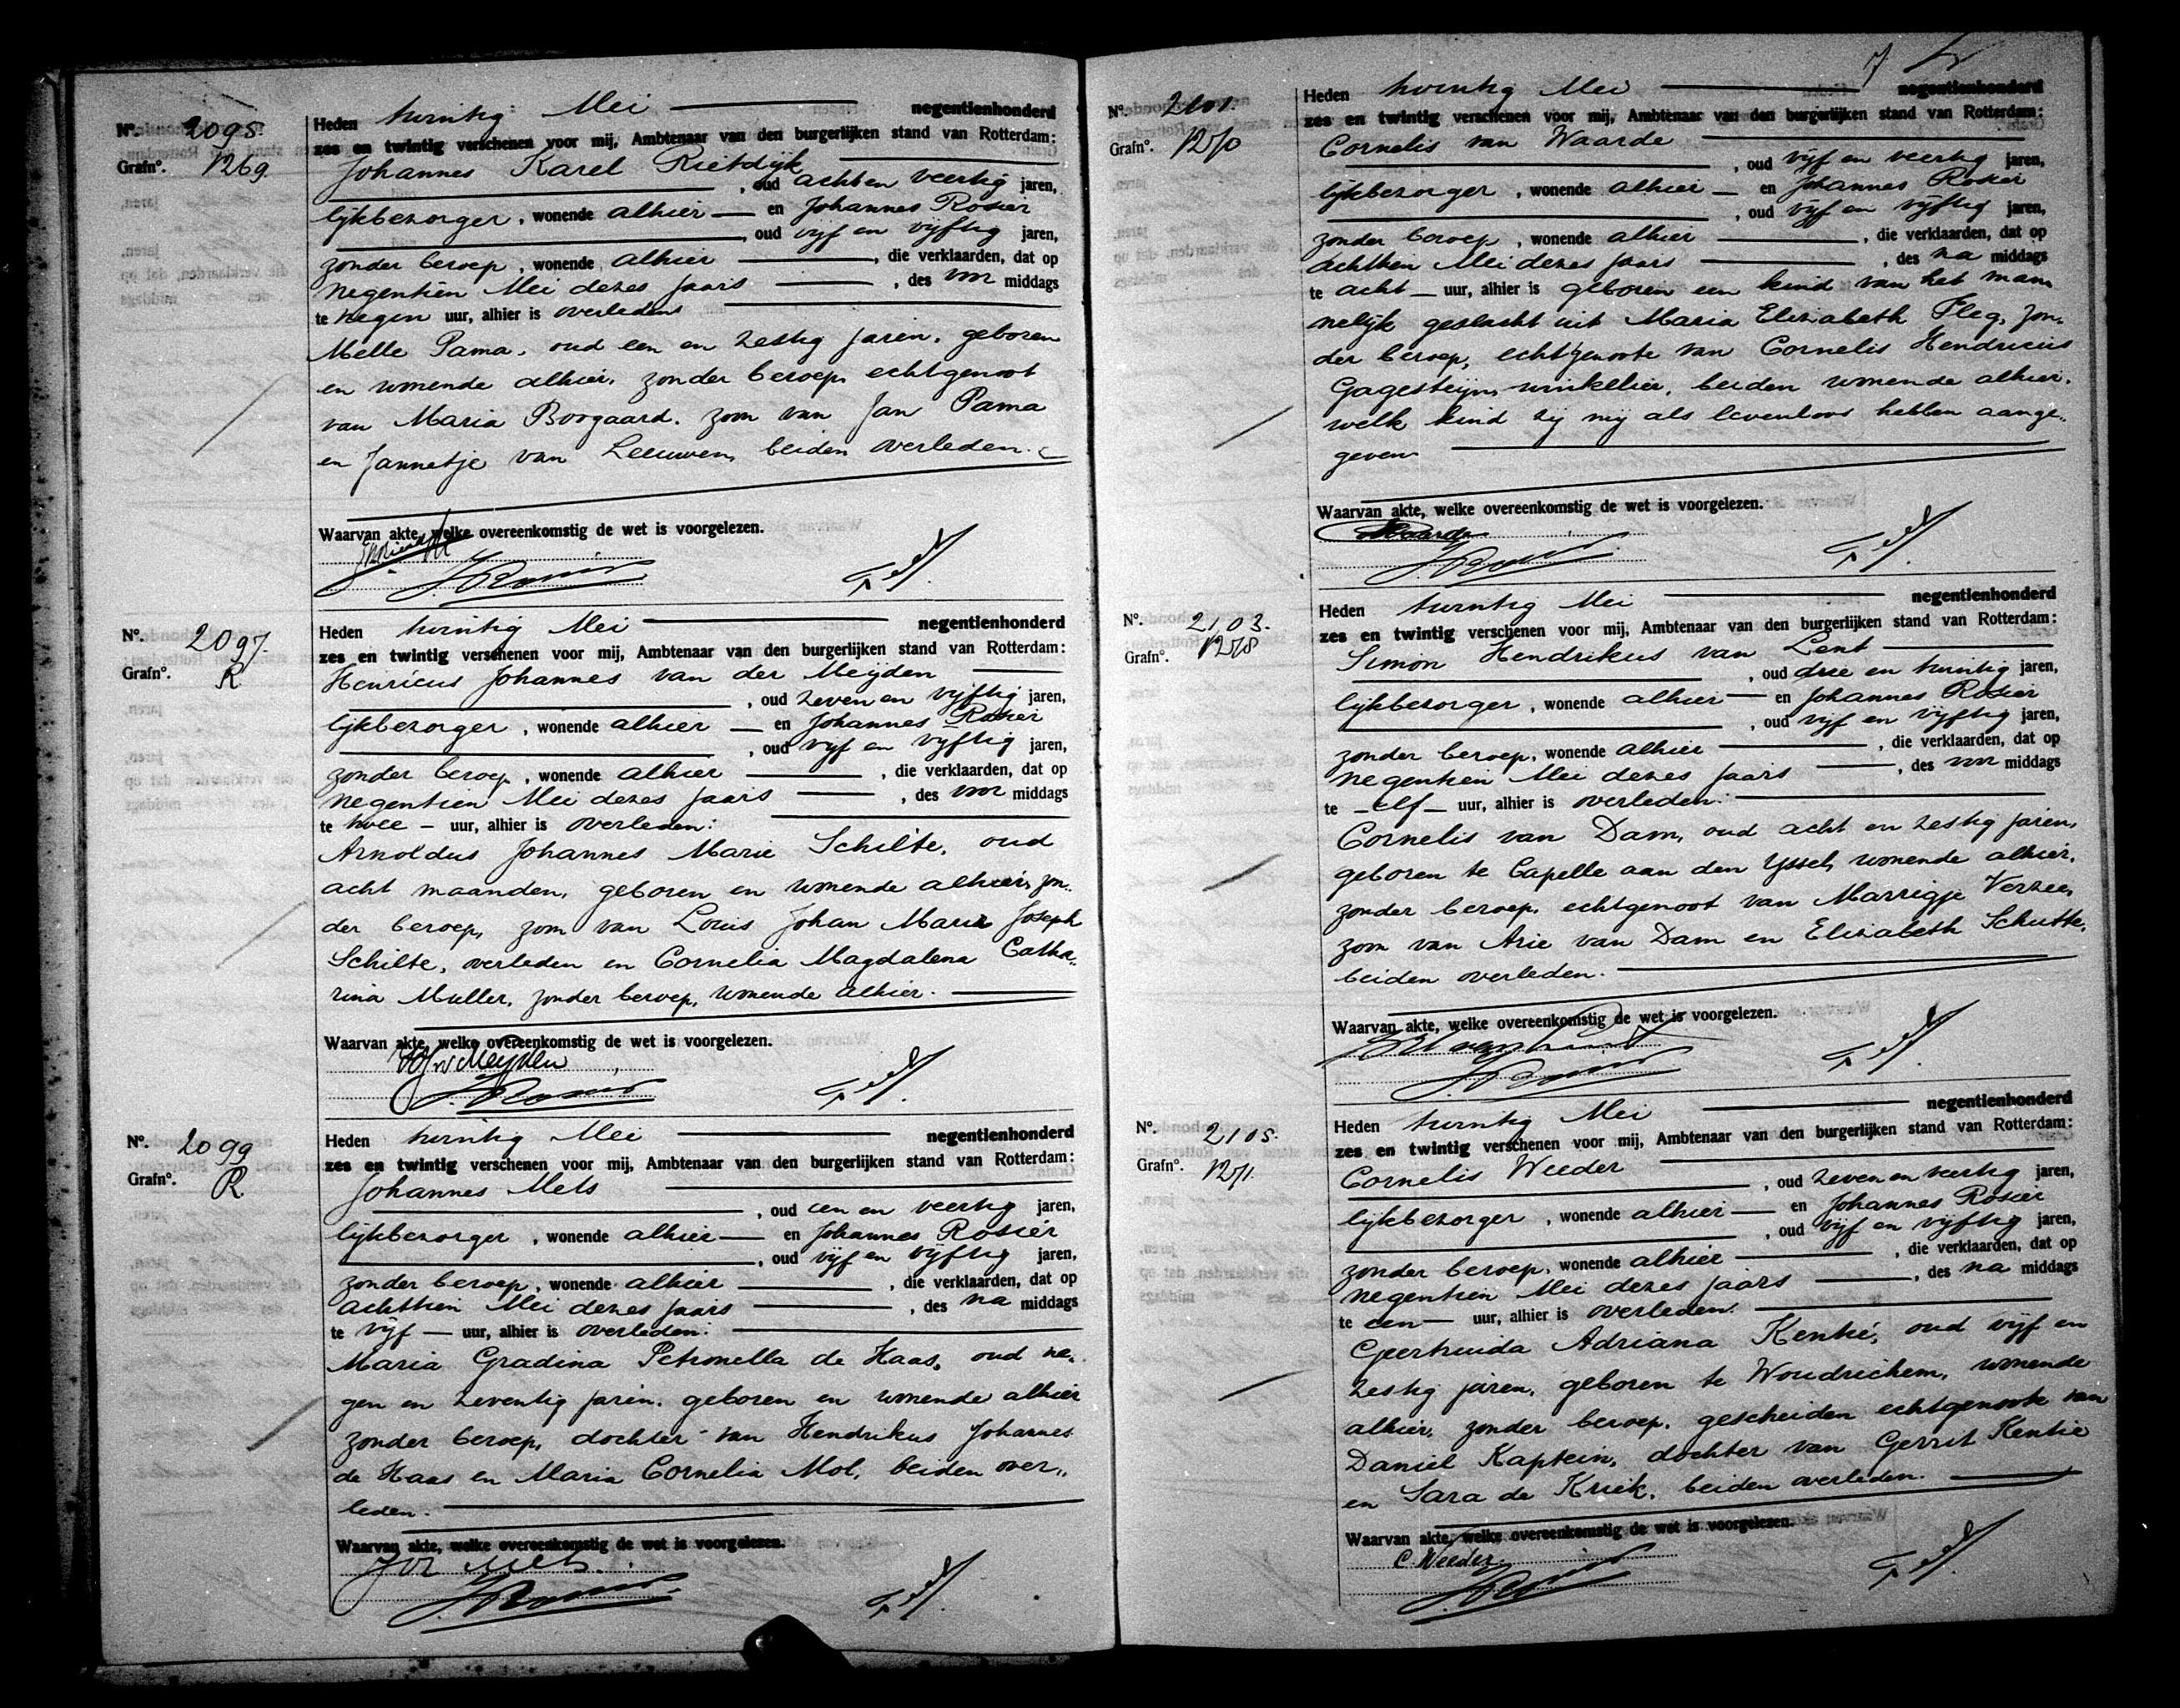 No. 2095.
Grafno. 1269
Heden twintig Mei negentienhonderd
zes en twintig verschenen voor mij, Ambtenaar van den burgerlijken stand van Rotterdam:
Johannes Karel Rietdijk
, oud acht en veertig jaren,
lijkbezorger, wonende alhier en Johannes Rosier
, oud vijf en vijftig jaren,
zonder beroep, wonende alhier , die verklaarden, dat op
negentien Mei dezes jaars , des voor middags
te negen uur, alhier is overleden:
Melle Pama, oud een en zestig jaren, geboren
en wonende alhier, zonder beroep, echtgenoot
van Maria Boogaard, zoon van Jan Pama
en Jannetje van Leeuwen, beiden overleden.
Waarvan akte, welke overeenkomstig de wet is voorgelezen.
No. 2097.
Grafno. R
Heden twintig Mei negentienhonderd
zes en twintig verschenen voor mij, Ambtenaar van den burgerlijken stand van Rotterdam:
Henricus Johannes van der Meijden
, oud zeven en vijftig jaren,
lijkbezorger, wonende alhier en Johannes Rosier
, oud vijf en vijftig jaren,
zonder beroep, wonende alhier , die verklaarden, dat op
negentien Mei dezes jaars , des voor middags
te twee uur, alhier is overleden:
Arnoldus Johannes Marie Schilte, oud
acht maanden, geboren en wonende alhier, zon-
der beroep, zoon van Louis Johan Marie Joseph
Schilte, overleden en Cornelia Magdalena Catha-
rina Muller, zonder beroep, wonende alhier.
Waarvan akte, welke overeenkomstig de wet is voorgelezen.
HJvdMeijden
J. Rosier
No. 2099
Grafno. R
Heden twintig Mei negentienhonderd
zes en twintig verschenen voor mij, Ambtenaar van den burgerlijken stand van Rotterdam:
Johannes Mets
, oud een en veertig jaren,
lijkbezorger, wonende alhier en Johannes Rosier
, oud vijf en vijftig jaren,
zonder beroep, wonende alhier , die verklaarden, dat op
achttien Mei dezes jaars , des na middags
te vijf uur, alhier is overleden:
Maria Gradina Petronella de Haas, oud ne-
gen en zeventig jaren, geboren en wonende alhier
zonder beroep, dochter van Hendrikus Johannes
de Haas en Maria Cornelia Mol, beiden over-
leden.
Waarvan akte, welke overeenkomstig de wet is voorgelezen.
Joh Mets.
J. Rosier
No. 2101.
Grafno. 1270
Heden twintig Mei negentienhonderd
zes en twintig verschenen voor mij, Ambtenaar van den burgerlijken stand van Rotterdam:
Cornelis van Waarde
, oud vijf en veertig jaren,
lijkbezorger, wonende alhier en Johannes Rosier
, oud vijf en vijftig jaren,
zonder beroep, wonende alhier , die verklaarden, dat op
achttien Mei dezes jaars , des na middags
te acht uur, alhier is geboren een kind van het man-
nelijk geslacht uit Maria Elizabeth Fleg, zon-
der beroep, echtgenoote van Cornelis Hendricus
Gagesteijn, winkelier, beiden wonende alhier,
welk kind zij mij als levenloos hebben aange-
geven.
Waarvan akte, welke overeenkomstig de wet is voorgelezen.
J. Rosier
No. 2103.
Grafno. 1278
Heden twintig Mei negentienhonderd
zes en twintig verschenen voor mij, Ambtenaar van den burgerlijken stand van Rotterdam:
Simon Hendrikus van Lent
, oud drie en twintig jaren,
lijkbezorger, wonende alhier en Johannes Rosier
, oud vijf en vijftig jaren,
zonder beroep, wonende alhier , die verklaarden, dat op
negentien Mei dezes jaars , des voor middags
te elf uur, alhier is overleden:
Cornelis van Dam, oud acht en zestig jaren,
geboren te Capelle aan den Yssel, wonende alhier,
zonder beroep, echtgenoot van Marrigje Verzee,
zoon van Arie van Dam en Elizabeth Schutte,
beiden overleden.
Waarvan akte, welke overeenkomstig de wet is voorgelezen.
J. Rosier
No. 2105.
Grafno. 1271.
Heden twintig Mei negentienhonderd
zes en twintig verschenen voor mij, Ambtenaar van den burgerlijken stand van Rotterdam:
Cornelis Weeder
, oud zeven en veertig jaren,
lijkbezorger, wonende alhier en Johannes Rosier
, oud vijf en vijftig jaren,
zonder beroep, wonende alhier , die verklaarden, dat op
negentien Mei dezes jaars , des na middags
te een uur, alhier is overleden:
Geertruida Adriana Kentie, oud vijf en
zestig jaren, geboren te Woudrichem, wonende
alhier, zonder beroep, gescheiden echtgenoote van
Daniel Kaptein, dochter van Gerrit Kentie
en Sara de Kriek, beiden overleden.
Waarvan akte, welke overeenkomstig de wet is voorgelezen.
C. Weeder
J. Rosier